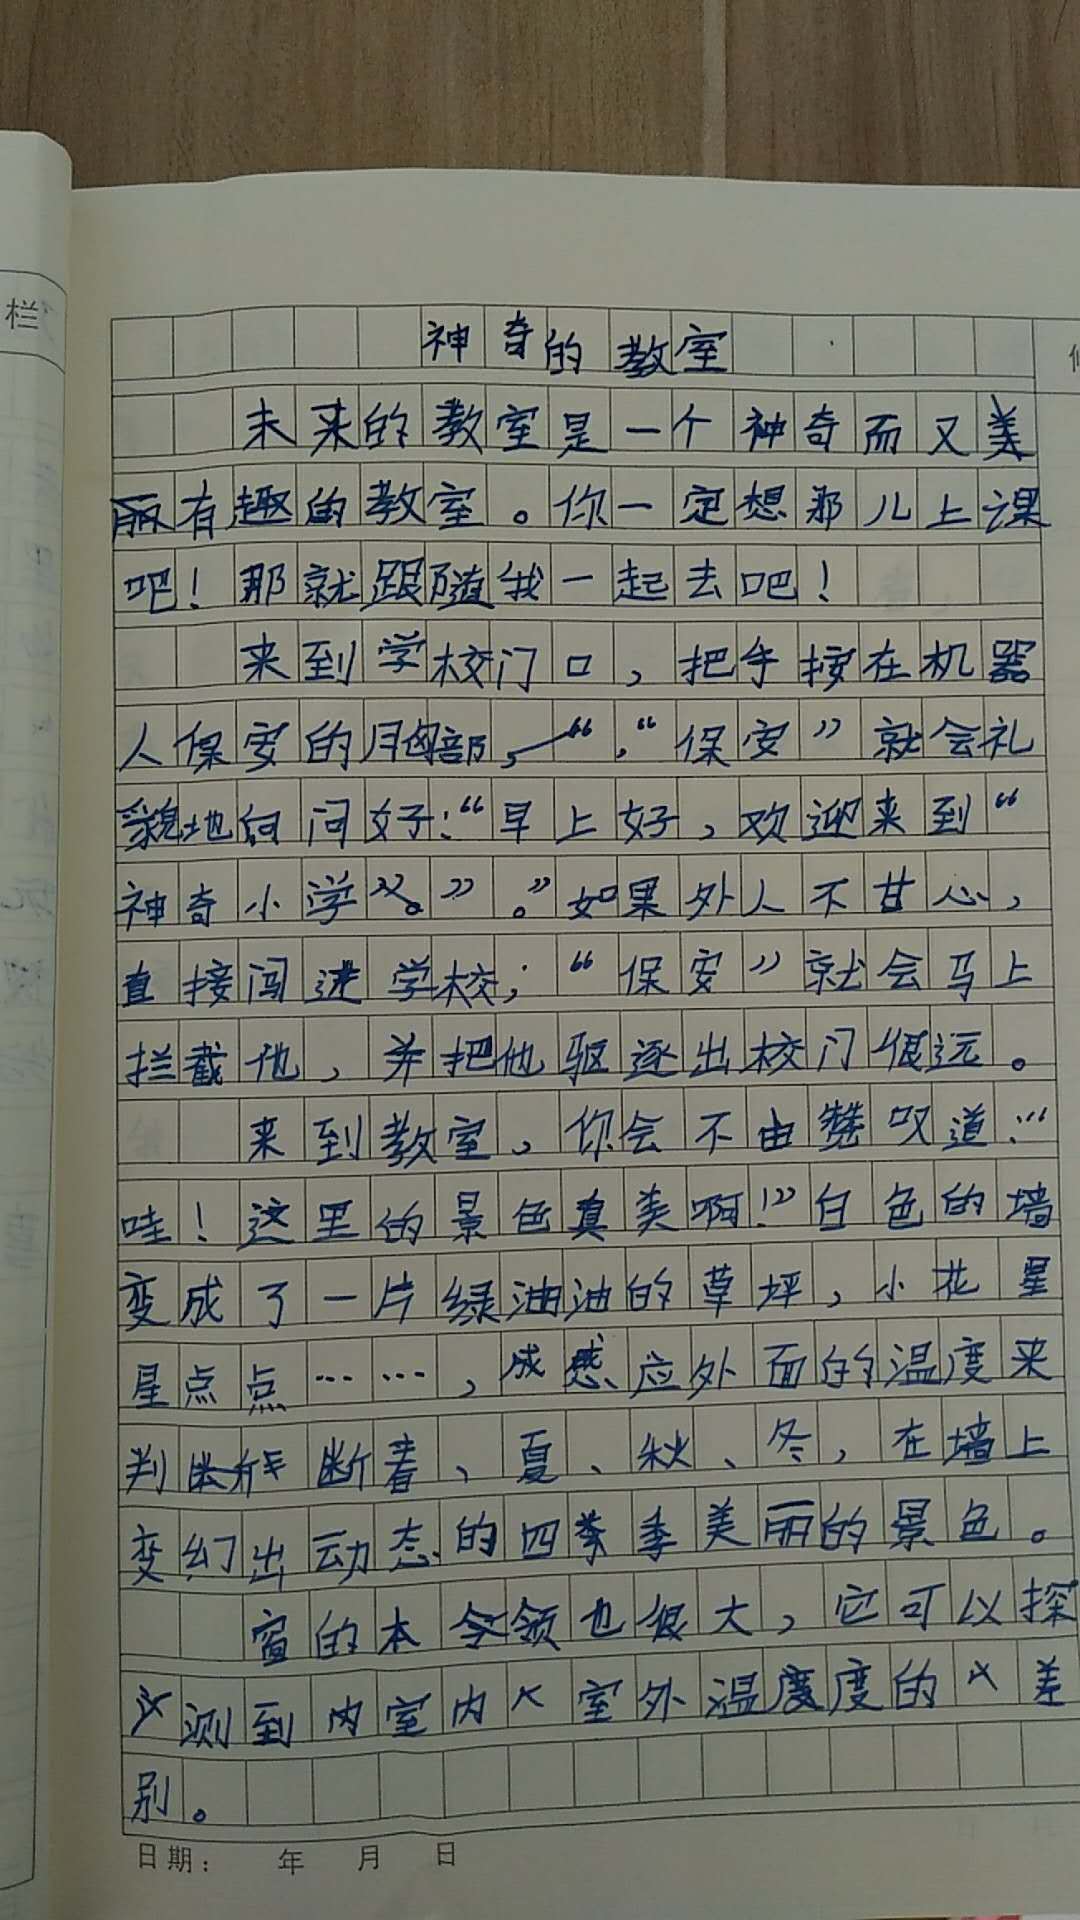 栏
神奇的教室
未来的教室是一个神奇而又美
丽有趣的教室。你一定想那儿上课
吧！那就跟随我一起去吧！
来到学校门口，把手按在机器
人保安的胸部，“保安”就会礼
貌地向问好：“早上好，欢迎来到“
神奇小学”。”如果外人不甘心，
直接闯进学校，“保安”就会马上
拦截他，并把他驱逐出校门很远。
来到教室，你会不由赞叹道：“
哇！这里的景色真美啊！”白色的墙
变成了一片绿油油的草坪，小花星
星点点……，感应外面的温度来
判断春、夏、秋、冬，在墙上
变幻出动态的四季美丽的景色。
窗的本领也很大，它可以探
测到内室内室外温度的差
别。
日期： 年 月 日